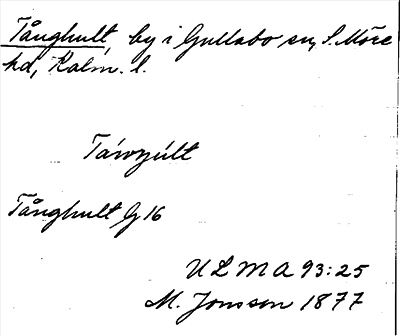 Tånghult, by i Gullabo sn, S. Möre
hd, Kalm. l.
Tånghult G16
ULMA 93:25
M. Jonsson 1877